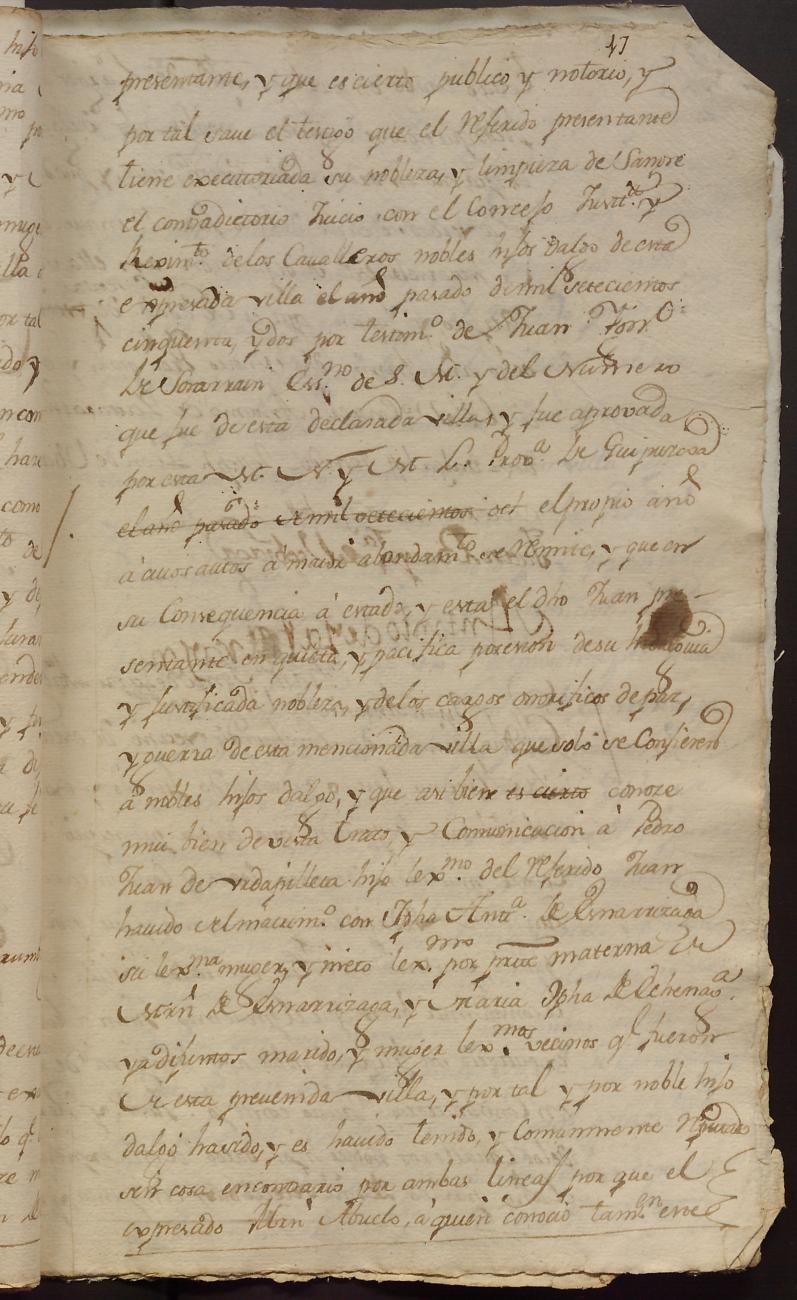 17
presentante, y que es cierto publico y notorio, y
por tal save el testigo que el referido presentante
tiene executoriada su nobleza, y limpieza de Sangre
el contradictorio Juicio con el Concejo Justt.ª y
Reximto. de los Cavalleros nobles hijos dalgo de esta
expresada villa el año pasado de mil setecientos
cinquenta, y dos por testimo. de Juan
de Sorarrain Essno. de S. M. y del Numero
que fue de esta declarada villa, y fue aprovada
por esta M. N. y M. L. Prova. de Guipuzcoa
el año pasado de mil setecientos el propio año
á cuios autos á maior abundamto. se remite, y que en
su Consequencia á estado, y esta el dho Juan pre-
sentante en quieta, y pacifica posesion de su
y justificada nobleza, y de los cargos onorificos de paz,
y guerra de esta mencionada villa que solo se Confieren
á nobles hijos dalgo, y que asi bien es cierto conoze
mui bien de vista trato, y Comunicacion á Pedro
Juan de vidapilleta hijo lexmo. del referido Juan
havido del matrimo. con Jpha Anta. de Ymarrizaga
su lexma. muger, y nieto lexmo. por prte materna de
Mrn de Ymarrizaga, y Maria Jpha de
ya difuntos marido, y muger lexmos. vecinos q.e fueron
de esta prevenida villa, y por tal y por noble hijo
dalgo havido, y es havido tenido, y Comunmente reputado
sin cosa en contrario por ambas lineas por que el
expresado Mrn Abuelo, á quien conocio tamen. este